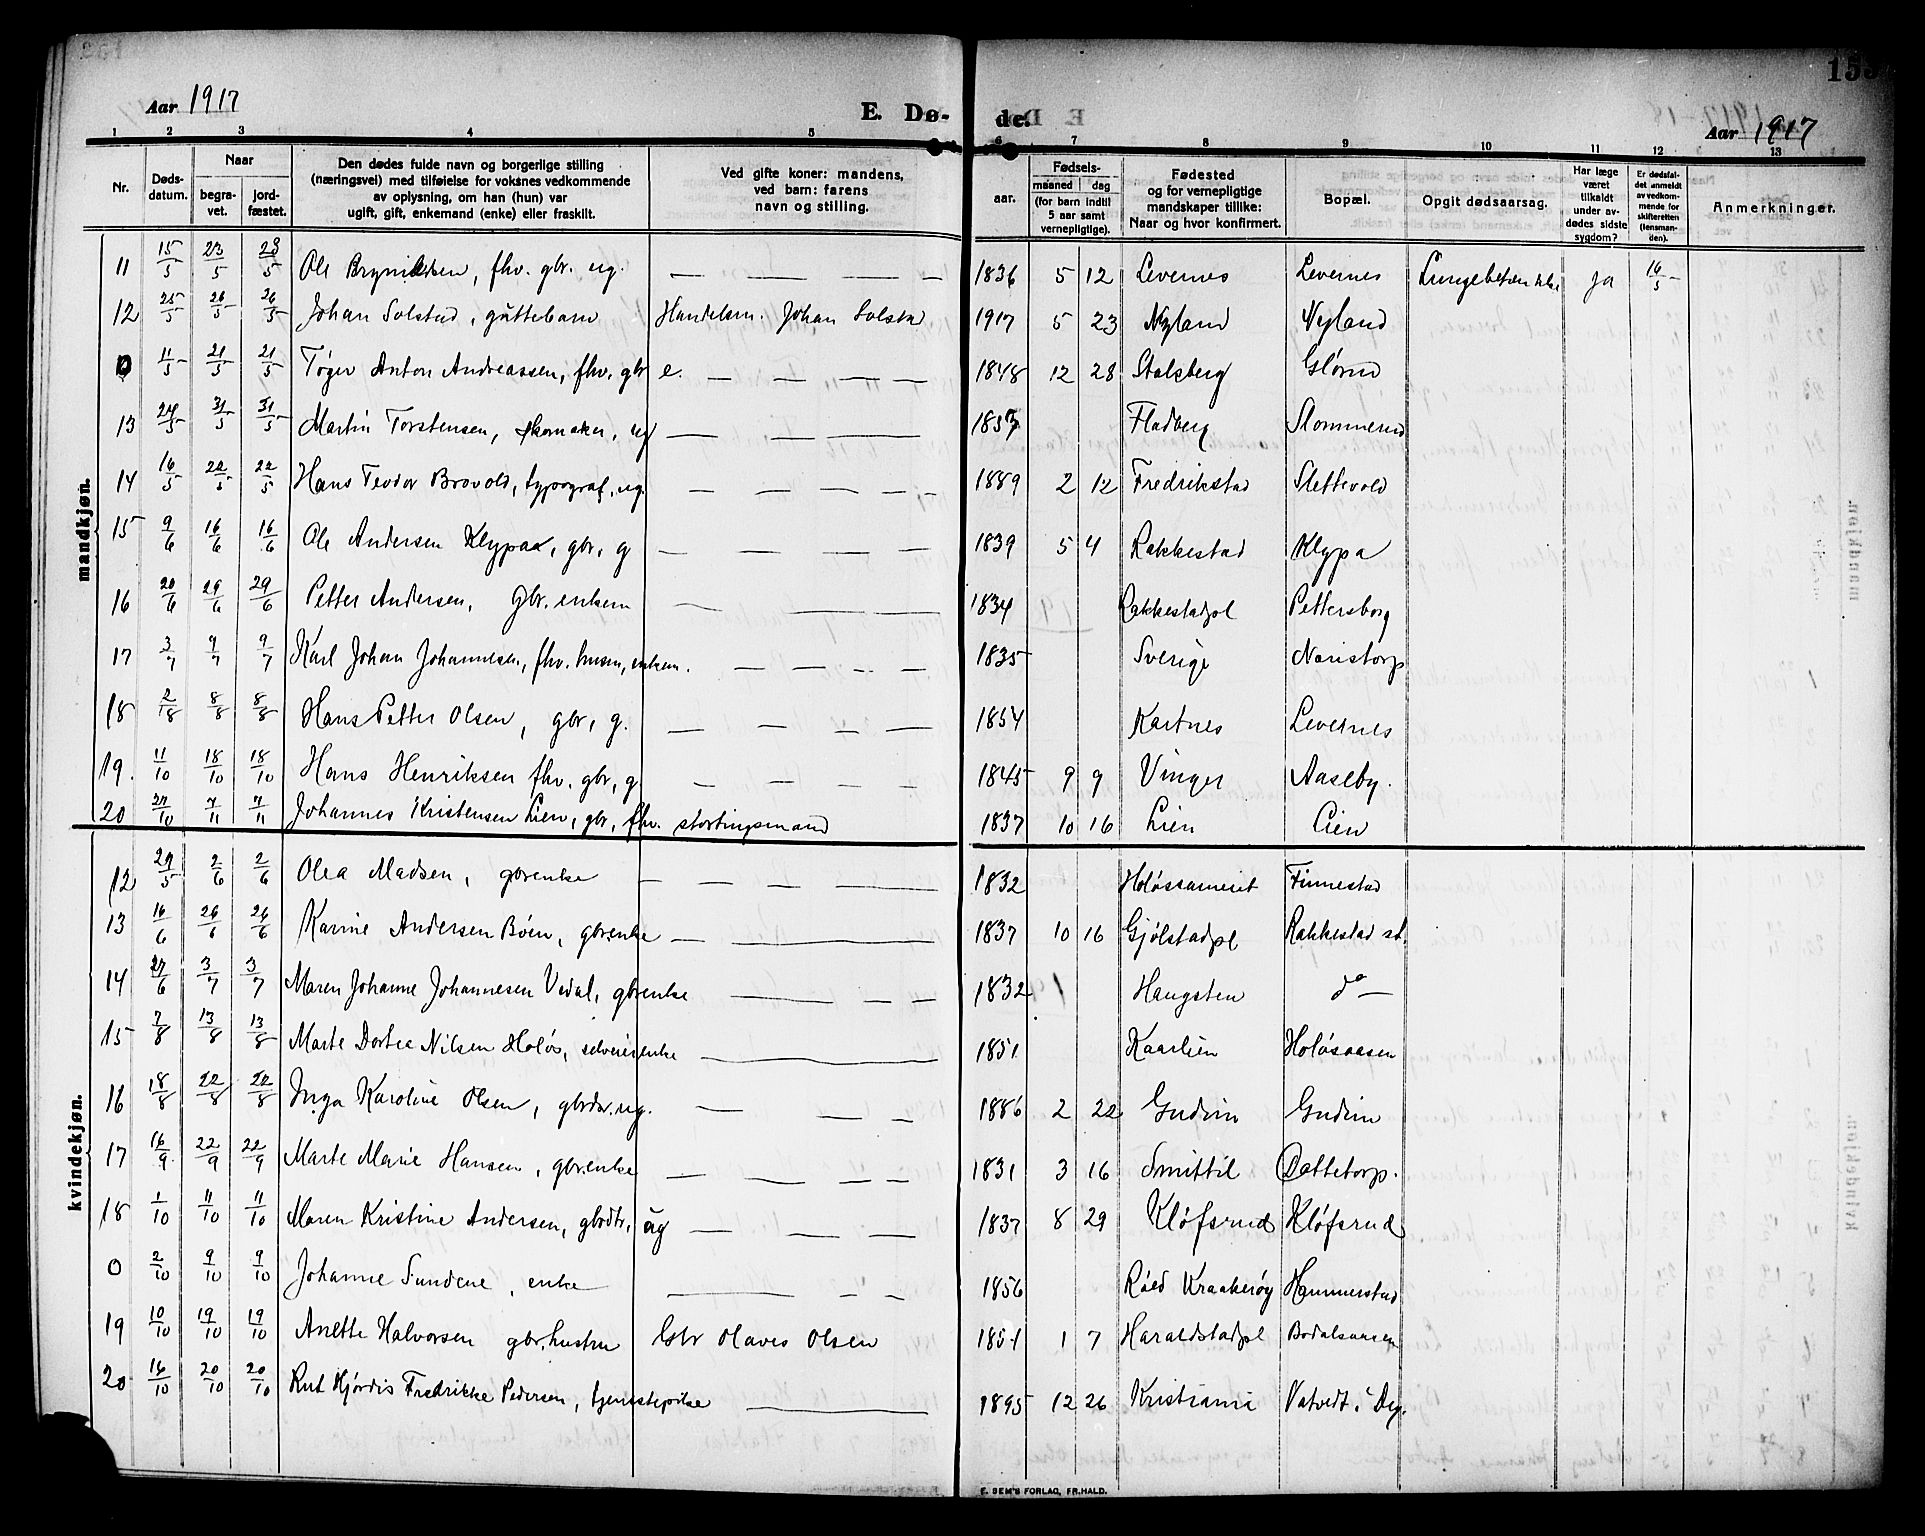 153
Aar 1917
E. Dø-
de.
Aar 1917
1 2 3 4 5 6 7 8 9 10 11 12 13
Nr.
Døds-
datum.
Naar
begra-
vet.
jord-
fæstet.
Den dødes fulde navn og borgerlige stilling
(næringsvei) med tilføielse for voksnes vedkommende
av oplysning, om han (hun) var
ugift, gift, enkemand (enke) eller fraskilt.
Ved gifte koner: mandens,
ved barn: farens
navn og stilling.
aar.
Fødsels-
maaned dag
(for barn indtil
5 aar samt
vernepligtige).
Fødested
og for vernepligtige
mandskaper tillike:
Naar og hvor konfirmert.
Bopæl.
Opgit dødsaarsag.
Har læge
været
tilkaldt
under av-
dødes sidste
sygdom?
Er dødsfal-
det anmeldt
av vedkom-
mende for
skifteretten
(lensman-
den).
Anmerkninger.
mandkjøn.
11 15/5 23/5 23/5 Ole Brynildsen, fhv. gbr. ug. — — — — 1836 5 12 Levernes Levernes ja 16/5
12 25/5 26/5 26/5 Johan Solstad, guttebarn Handelsm. Johan Solstad 1917 5 23 Nyland Nyland
0 11/5 21/5 21/5 Tøger Anton Andreassen, fhv. gbr e. — — — — 1848 12 28 Stalsberg Glørud
13 24/5 31/5 31/5 Martin Torstensen, skomaker, ug — — — 1837 Fladberg Slommerud
14 16/5 22/5 22/5 Hans Teodor Brovold, typograf, ug. — — — — 1889 2 12 Fredrikstad Slettevold
15 9/6 16/6 16/6 Ole Andersen Klypaa, gbr, g — — — — 1839 5 4 Rakkestad Klypa
16 20/6 29/6 29/6 Petter Andersen, gbr. enkem — — — 1834 Rakkestadpl Pettersborg
17 3/7 9/7 9/7 Karl Johan Johannesen, fhv. husm, enkem. — — — — 1835 Sverige Naristorp
18 2/8 8/8 8/8 Hans Petter Olsen, gbr, g. — — — — 1854 Kartnes Levernes
19. 11/10 18/10 18/10 Hans Henriksen fhv. gbr, g — — — — 1845 9 9 Vinger Aaseby.
20 27/10 7/11 7/11 Johannes Kristensen Lien, gbr, fhv. stortingsmand 1837 10 16 Lien Lien
kvindekjøn.
12 27/5 2/6 2/6 Olea Madsen, gbrenke — — — — 1832 Finnestad
13 16/6 26/6 26/6 Karine Andersen Böen, gbrenke — — — 1837 10 16 Gjølstadpl Rakkestad st.
14 27/6 3/7 3/7 Maren Johanne Johannesen Vedal, gbrenke — — — — 1832 Haugsten do —
15 7/8 13/8 13/8 Marte Dortea Nilsen Holøs, selveierenke — 1851 Kaarlien Holøsaasen
16 18/8 22/8 22/8 Inga Karoline Olsen, gbrdtr. ug. — — — 1886 2 22 Gudim Gudim
17 16/9 22/9 22/9 Marte Marie Hansen, gbrenke — — — — 1831 3 16 Smittil Dattetorp.
18 1/10 11/10 11/10 Maren Kristine Andersen, gbrdtr, ug — — — 1837 8 29 Kløfsrud Kløfsrud
0 2/10 9/10 9/10 Johanne Sundene, enke — — — 1856 Røed Kraakerøy Hammerstad
19 10/10 19/10 19/10 Anette Halvorsen gbr.hustru Gbr Olaves Olsen 1854 1 7 Haraldstadpl Bodalsaasen
20 16/10 20/10 20/10 Rut Hjørdis Fredrikke Pedersen, tjenestepike — 1895 12 26 Kristiania Vatvedt i Deg.
E. SEM'S FORLAG, FR.HALD.